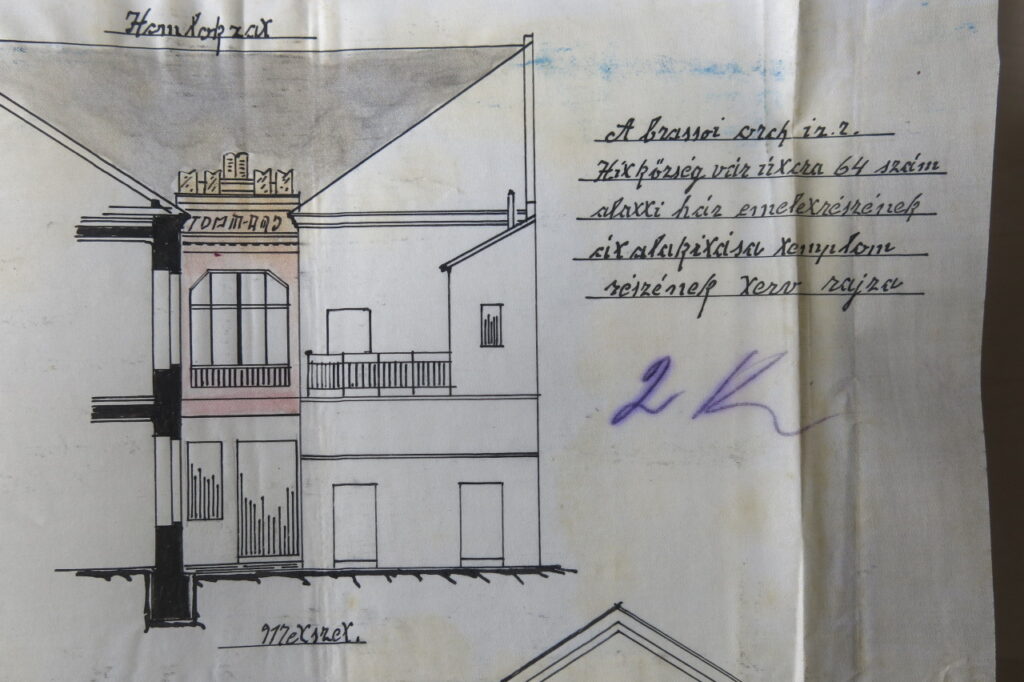 Homlokzat
A brassói orth izr.
Hitközség vár útcza 64 szám
alatti ház emeletrészének
átalakitása templom
részének terv rajza
2 K
Metszet.